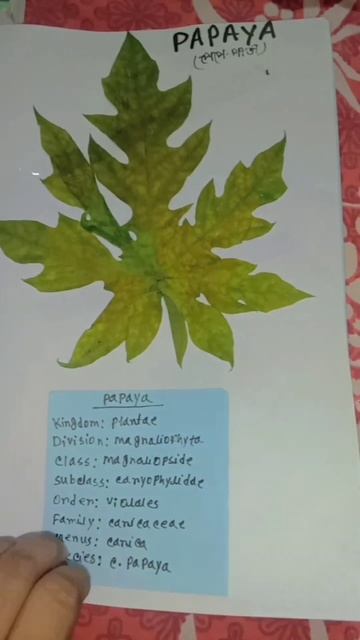 PAPAYA
Papaya
Kingdom: plantae
Division: magnaliophyta
Class: magnaliopside
Subclass: caryophyliddae
Orden: violales
Family: caricaceae
enus: carica
ecies: c. papaya